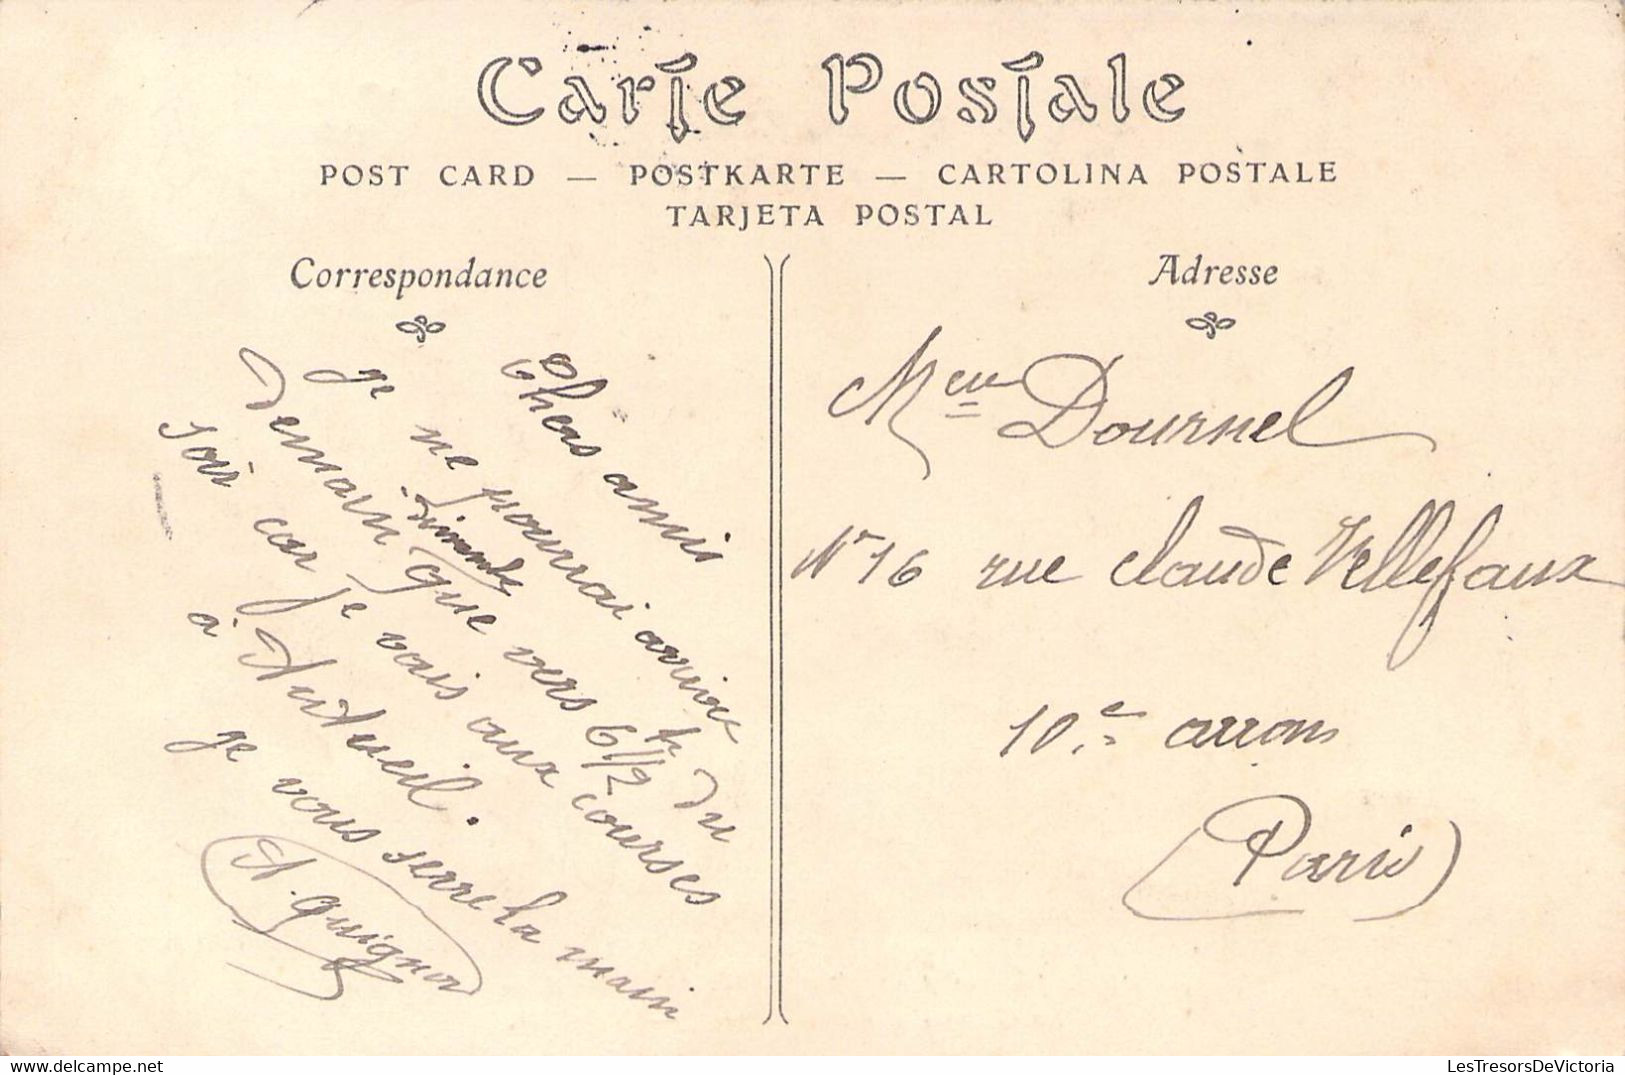 Carte Postale
POST CARD — POSTKARTE — CARTOLINA POSTALE
TARJETA POSTAL
Correspondance
Chers amis
je ne pourrai arriver
demain dimanche que vers 6 h 1/2 du
soir car je vais aux courses
à Auteuil.
je vous serre la main
A. Guignon
Adresse
Mme Dournel
No 16 rue Claude Vellefaux
10e arrons
(Paris)
LesTresorsDeVictoria